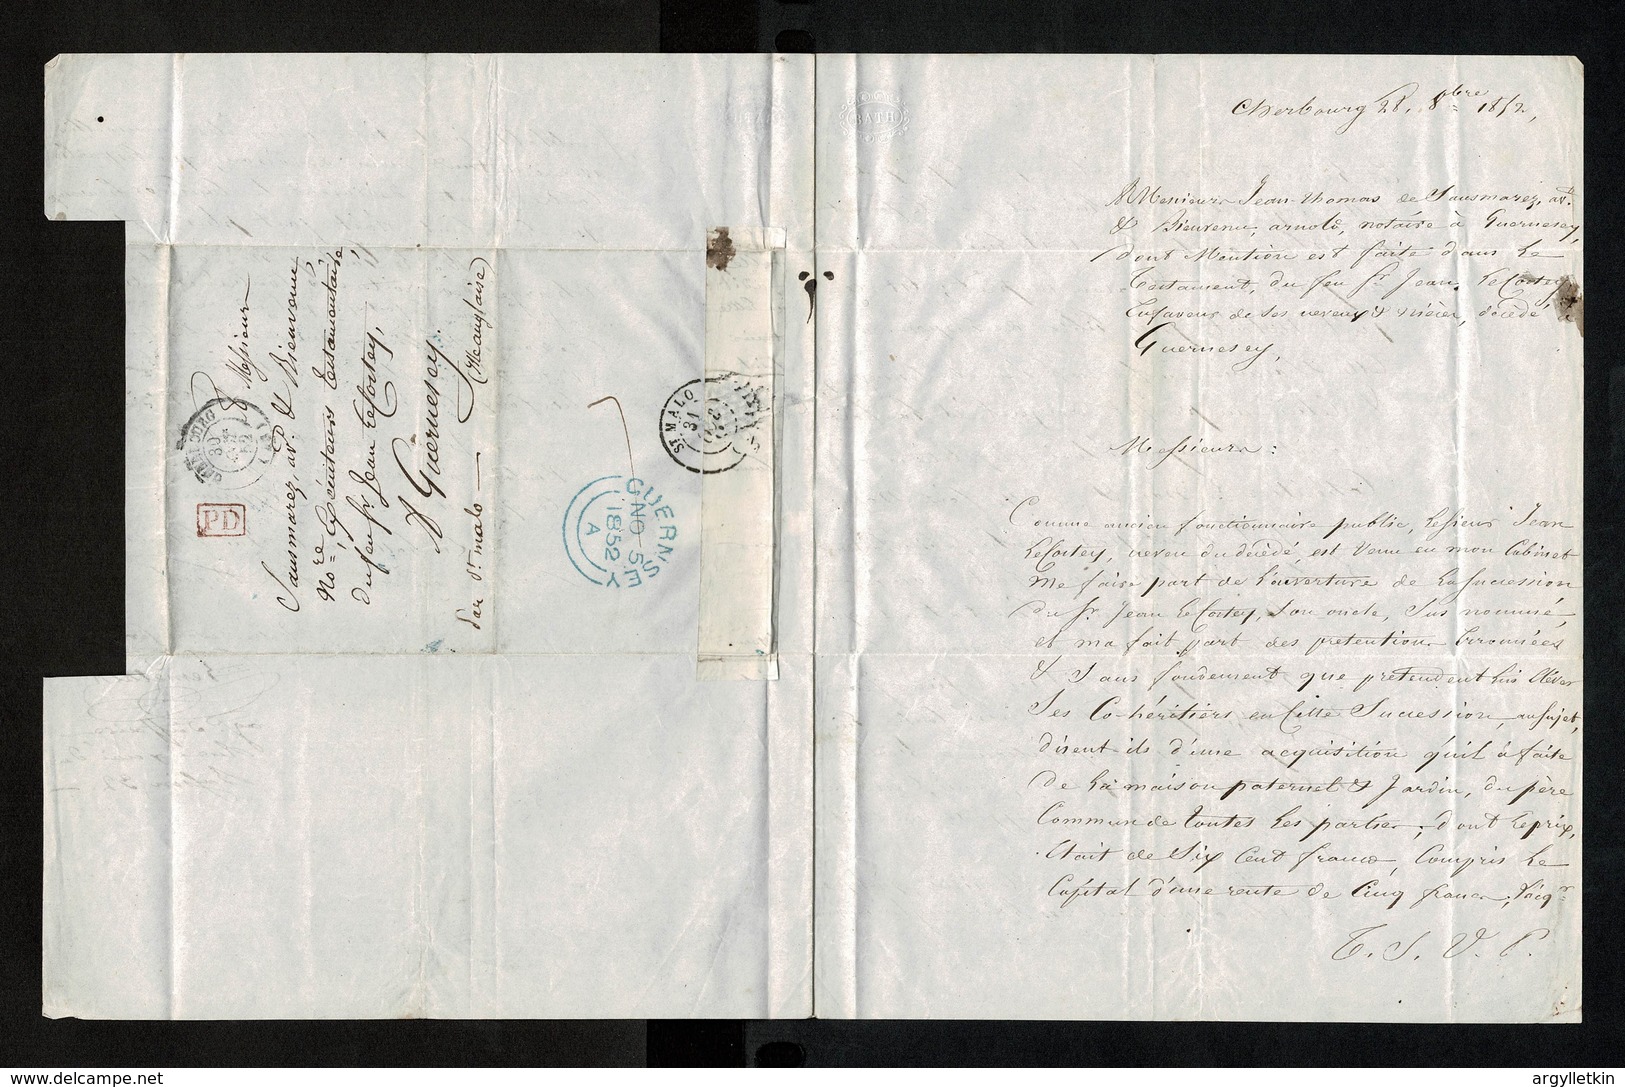 Cherbourg 28. 8bre 1852,
Messieurs Jean-thomas de Sausmarez, av.
& Bienvenu, arnold, notaire à Guernesey,
dont Mention est faite dans le
Testament, du feu Sr. Jean LeCostey,
Enfaveur de ses neveux & nièces, décédé à
Guernesey,
Messieurs :
Comme ancien fonctionnaire public, Lesieur Jean
LeCostey, neveu du décédé est venu en mon Cabinet
me faire part de l'ouverture de laSucession
du Sr. Jean LeCostey, son oncle, sus nommé,
et ma fait part des pretention Erronnées
& Sans fondement que pretendent lui Elever
Ses Co-héritiers en Cette Sucession, ausujet,
disent-ils d'une acquisition qu'il à faite
de La maison paternel & Jardin, du père
Commun de toutes Les parties, dont Leprix,
était de Six Cent francs, Compris Le
Capital d'une rente de Cinq francs,
T. S. V. P.
Messieur
Sausmarez, av. & Bienvenu
Nore=, Exécuteurs testamentaire
du feu Sr Jean LeCostey,
A Guernesey.
par St. malo — (Ileanglaise)
CHERBOURG
30
52
PD
GUERNSEY
NO 5
1852
A
ST MALO
31
BATH
argylletkin